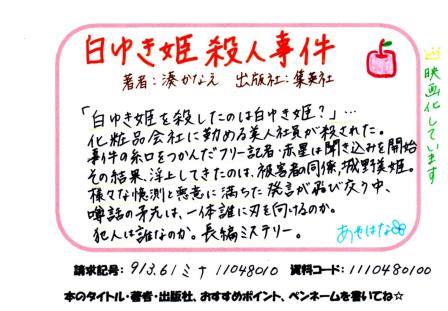 白ゆき姫 殺人事件
著者：湊かなえ 出版社：集英社
映画化しています
「白ゆき姫を殺したのは白ゆき姫？」…
化粧品会社に勤める美人社員が殺された。
事件の糸口をつかんだフリー記者・赤星は聞き込みを開始
その結果、浮上してきたのは、被害者の同僚、城野美姫。
様々な憶測と悪意に満ちた発言が飛び交う中、
噂話の矛先は、一体誰に刃を向けるのか。
犯人は誰なのか。長編ミステリー。
あやはな
請求記号：913.61ミナ 11048010 資料コード：1110480100
本のタイトル・著者・出版社、おすすめポイント、ペンネームを書いてね☆